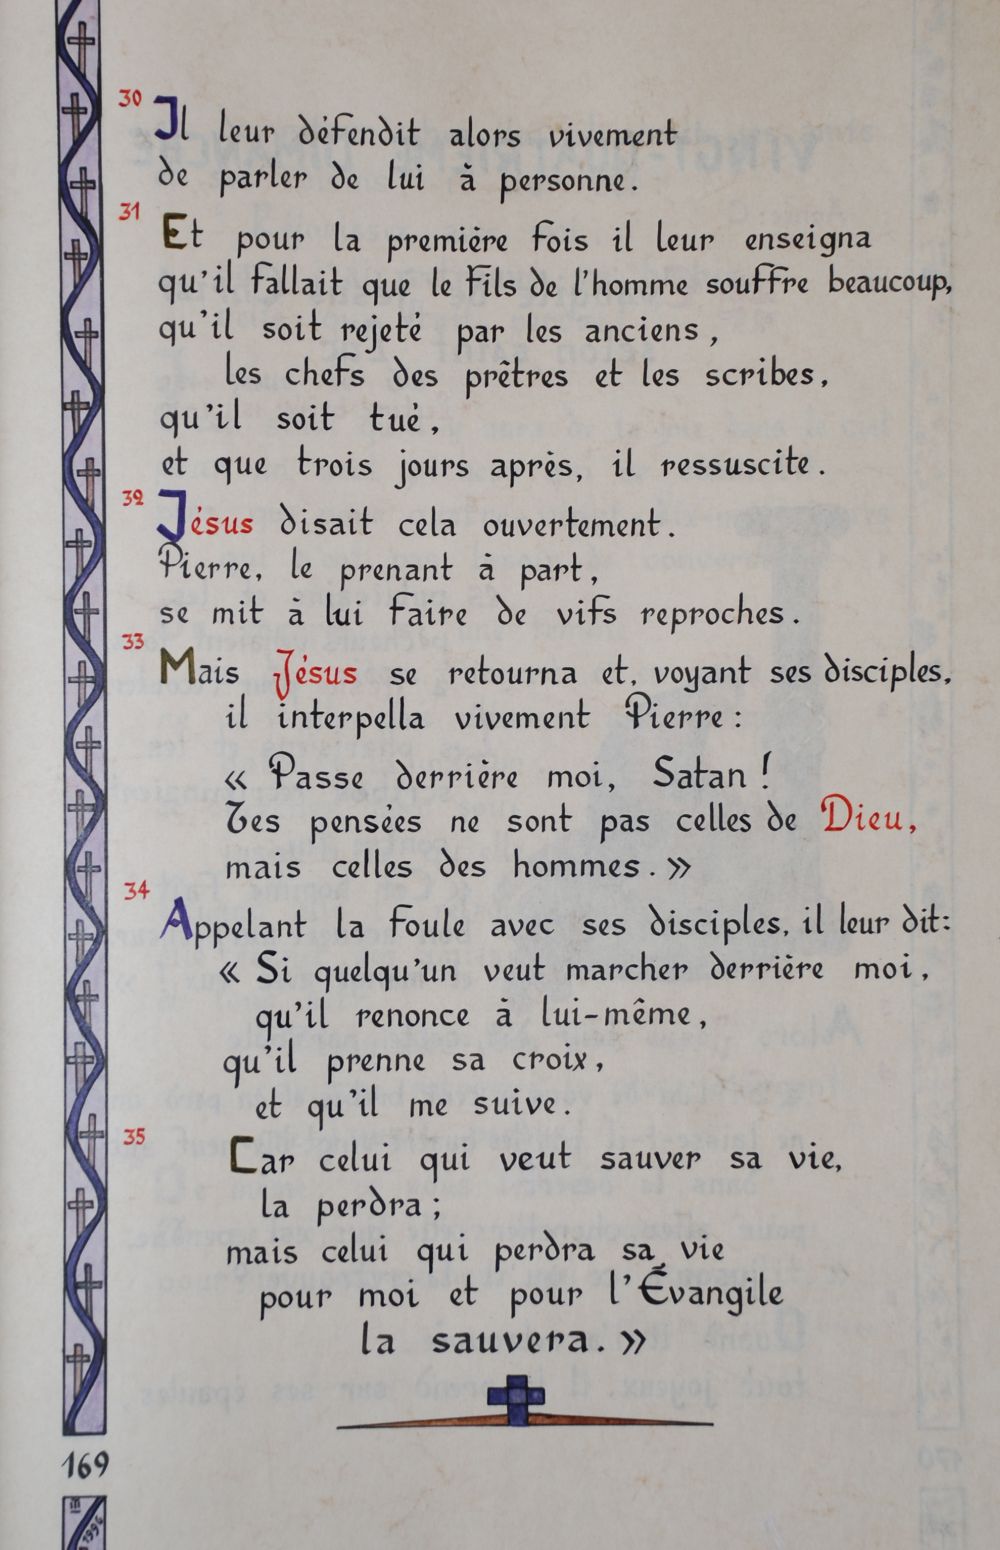 30
Il leur défendit alors vivement
de parler de lui à personne.
31
Et pour la première fois il leur enseigna
qu'il fallait que le Fils de l'homme souffre beaucoup,
qu'il soit rejeté par les anciens,
les chefs des prêtres et les scribes,
qu'il soit tué,
et que trois jours après, il ressuscite.
32
Jésus disait cela ouvertement.
Pierre, le prenant à part,
se mit à lui faire de vifs reproches.
33
Mais Jésus se retourna et, voyant ses disciples,
il interpella vivement Pierre :
« Passe derrière moi, Satan !
Tes pensées ne sont pas celles de Dieu,
mais celles des hommes. »
34
Appelant la foule avec ses disciples, il leur dit:
« Si quelqu'un veut marcher derrière moi,
qu'il renonce à lui-même,
qu'il prenne sa croix,
et qu'il me suive.
35
Car celui qui veut sauver sa vie,
la perdra ;
mais celui qui perdra sa vie
pour moi et pour l'Évangile
la sauvera. »
169
1996